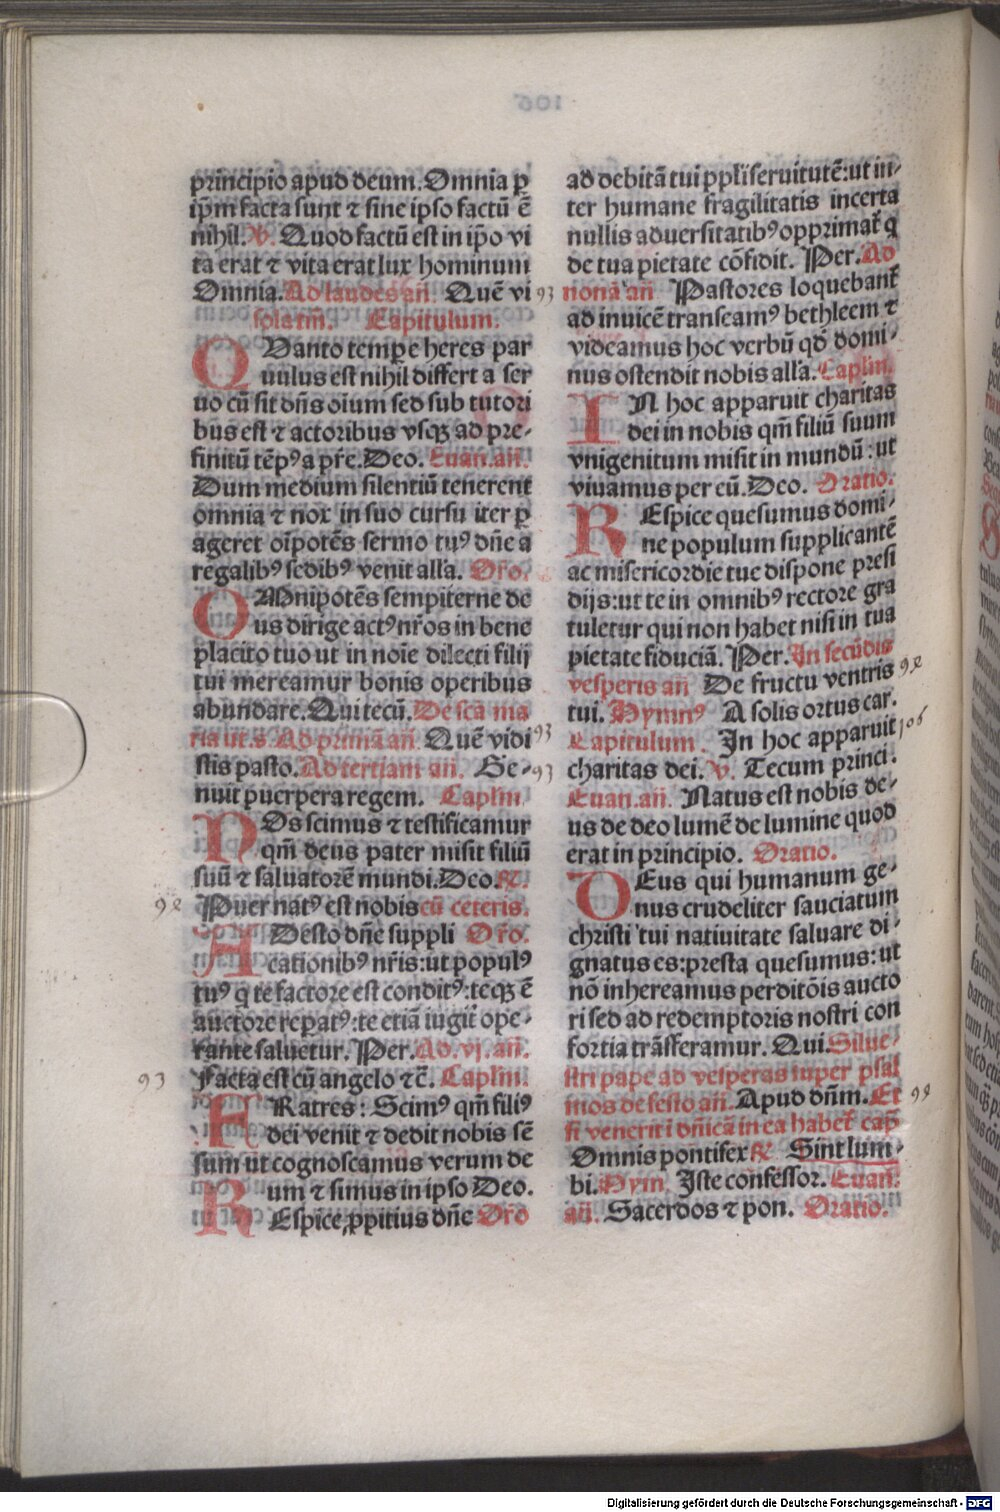 principio apud deum. Omnia ꝑ
ip̄m facta sunt ⁊ sine ipso factū ē
nihil. ℣. Quod factū est in ip̄o vi
ta erat ⁊ vita erat lux hominum
Omnia. Ad laudes an̄. Quē vi 93
sola tm̄. Capitulum.
QUanto tempꝑe heres par
uulus est nihil differt a ser
uo cū sit dn̄s oīum sed sub tutori
bus est ⁊ actoribus vsqꝫ ad pre-
finitū tēpꝰ a pr̄e. Deo. Euan. an̄.
Dum medium silentiū tenerent
omnia ⁊ nox in suo cursu iter ꝑ
ageret oīpotēs sermo tuꝰ dn̄e a
regalibꝰ sedibꝰ venit alla. Or̄o.
OMnipotēs sempiterne de
us dirige actꝰ nr̄os in bene
placito tuo ut in noīe dilecti filij
tui mereamur bonis operibus
abundare. Qui tecū. De scā ma
ria ut.s. Ad primā an̄. Quē vidi 93
stis pasto. Ad tertiam an̄. Ge- 93
nuit puerpera regem. Caplm̄
NOs scimus ⁊ testificamur
qm̄ deus pater misit filiū
suū ⁊ saluatorē mundi. Deo. ℟.
92 Puer natꝰ est nobis cū ceteris.
ADesto dn̄e suppli Or̄o.
cationibꝰ nr̄is: ut populꝰ
tuꝰ q̄ te factore est conditꝰ: teqꝫ ē
auctore repatꝰ: te etiā iugit̄ ope-
rante saluetur. Per. Ad. vj. an̄.
93 Facta est cū angelo ⁊c̄. Caplm̄.
FRatres: Scimꝰ qm̄ filiꝰ
dei venit ⁊ dedit nobis sē
sum ut cognoscamus verum de
um ⁊ simus in ipso Deo.
REspice ꝓpitius dn̄e Or̄o
106
ad debitā tui ppli seruitutē: ut in-
ter humane fragilitatis incerta
nullis aduersitatibꝰ opprimat̄ q̄
de tua pietate cōfidit. Per. Ad
nonā an̄ Pastores loquebant̄
ad inuicē transeamꝰ bethleem ⁊
videamus hoc verbū qd̄ domi-
nus ostendit nobis alla. Caplm̄.
IN hoc apparuit charitas
dei in nobis qm̄ filiū suum
vnigenitum misit in mundū: ut
viuamus per eū. Deo. Oratio.
REspice quesumus domi-
ne populum supplicantē
ac misericordie tue dispone presi
dijs: ut te in omnibꝰ rectore gra
tuletur qui non habet nisi in tua
pietate fiduciā. Per. In secūdis
vesperis an̄ De fructu ventris 92
tui. Hymnꝰ A solis ortus car.
Capitulum. In hoc apparuit 106
charitas dei. ℣. Tecum princi.
Euan. an̄. Natus est nobis de-
us de deo lumē de lumine quod
erat in principio. Oratio.
DEus qui humanum ge-
nus crudeliter sauciatum
christi tui natiuitate saluare di-
gnatus es: presta quesumus: ut
nō inhereamus perditōis aucto
ri sed ad redemptoris nostri con
sortia trāsferamur. Qui. Silue-
stri pape ad vesperas super psal
mos de festo an̄. Apud dn̄m. Et 99
si venerit i dn̄icā in ea habet̄ cap̄
Omnis pontifex ℟ Sint lum-
bi. Hym̄. Iste confessor. Euan.
an̄. Sacerdos ⁊ pon. Oratio.
Digitalisierung gefördert durch die Deutsche Forschungsgemeinschaft - DFG